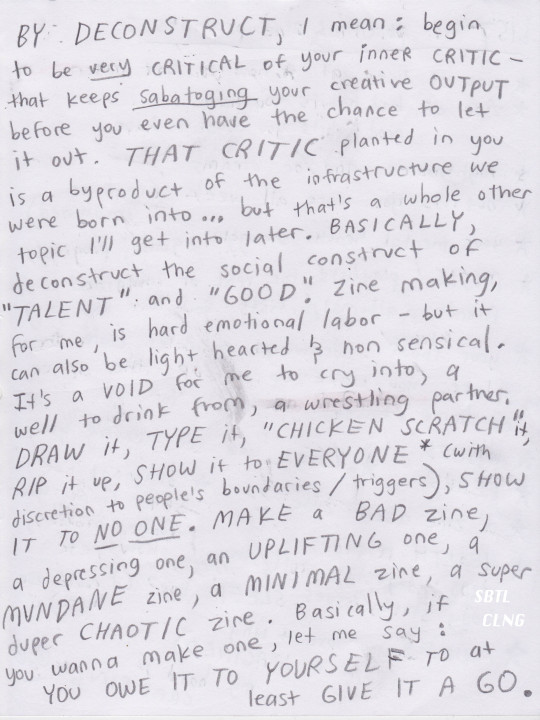 BY DECONSTRUCT, I mean: begin
to be very CRITICAL of your inner CRITIC -
that keeps sabatoging your creative OUTPUT
before you even have the chance to let
it out. THAT CRITIC planted in you
is a byproduct of the infrastructure we
were born into... but that's a whole other
topic I'll get into later. BASICALLY,
deconstruct the social construct of
"TALENT" and "GOOD". Zine making,
for me, is hard emotional labor - but it
can also be light hearted & non sensical.
It's a VOID for me to cry into, a
well to drink from, a wrestling partner.
DRAW it, TYPE it, "CHICKEN SCRATCH" it,
RIP it up, SHOW it to EVERYONE * (with
discretion to people's boundaries / triggers), SHOW
IT TO NO ONE. MAKE a BAD zine,
a depressing one, an UPLIFTING one, a
MUNDANE zine, a MINIMAL zine, a super
duper CHAOTIC zine. Basically, if
you wanna make one, let me say:
YOU OWE IT TO YOURSELF TO at
least GIVE IT A GO.
SBTL
CLNG